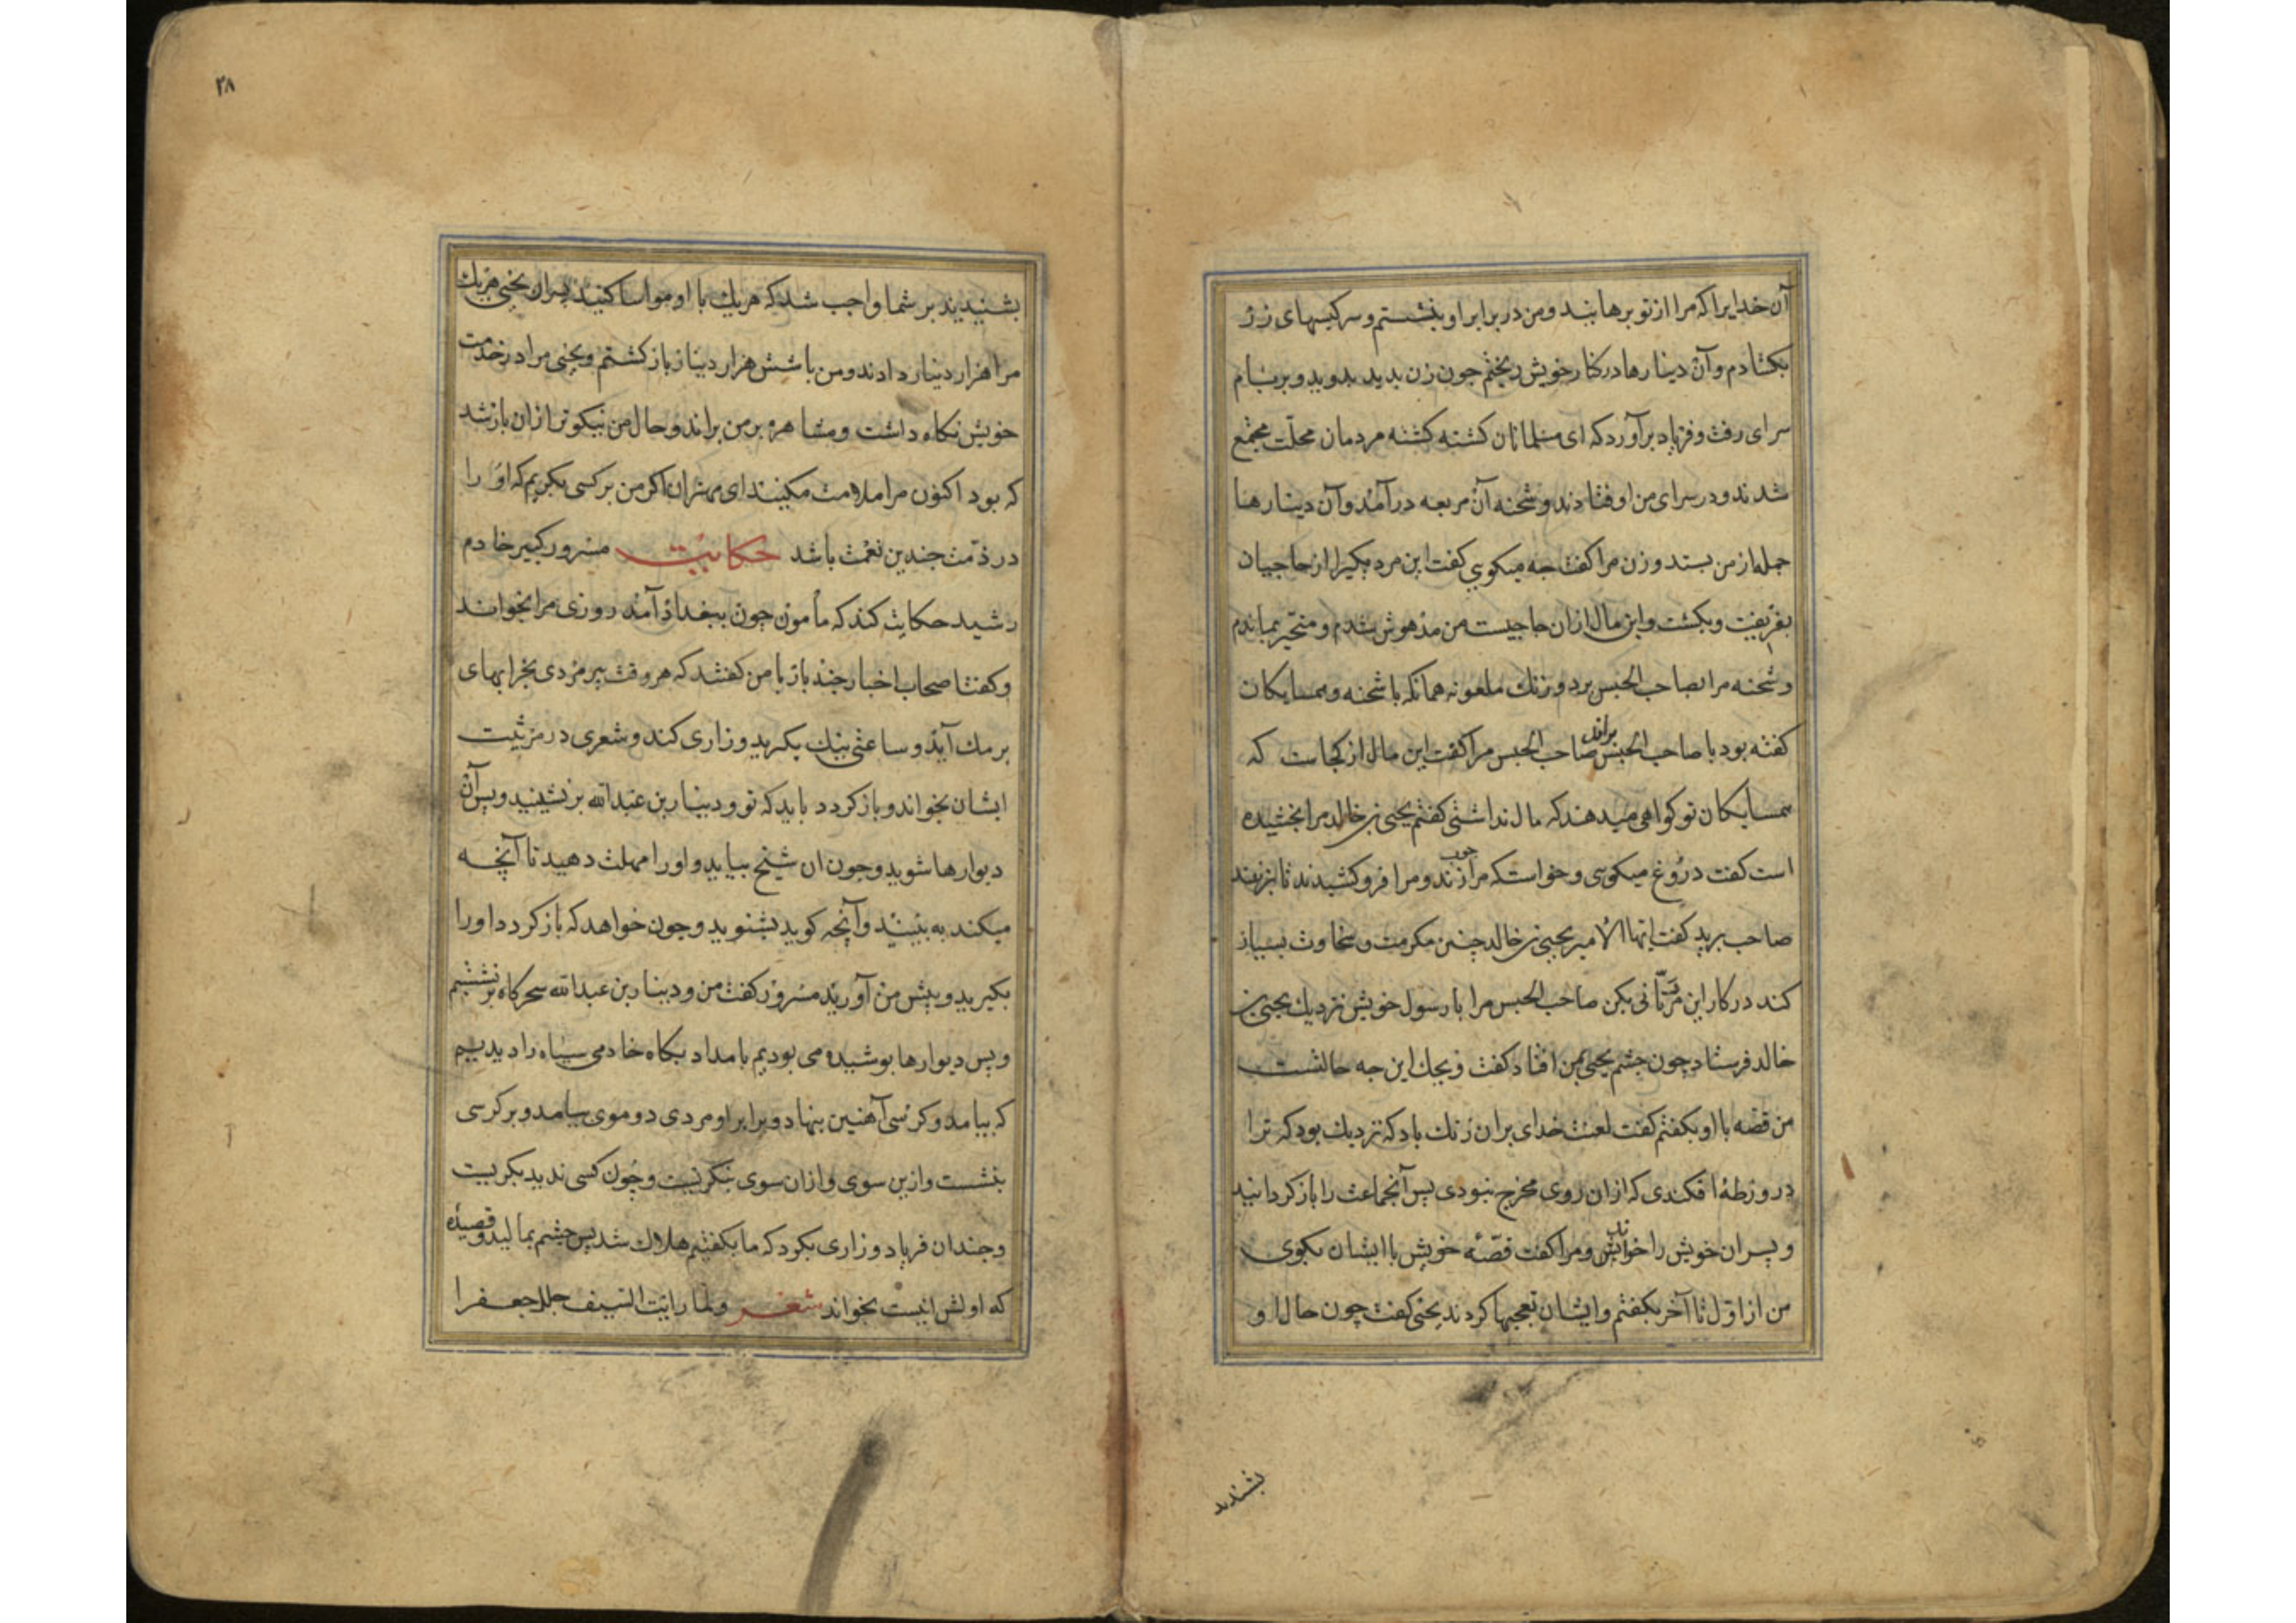 آن خدایرا که مرا از تو برهانید و من در برابر او بنشستم و سر کیسهای زر
بکشادم و آن دینارها در کنار خویش ریختم جون زن بدید بدوید و بر بام
سرای رفت و فریاد برآورد که ای مسلمانان کشته کشته مردمان محلّت مجتمع
شدند و در سرای من اوفتادند و شحنه آن مربعه درآمد و آن دینارها
جمله از من بستد و زن مرا کفت جه میکویی کفت این مرد یکیرا از حاجیان
بفریفت و بکشت و این مال ازان حاجیست من مدهوش شدم و متحیّر بماندم
و شحنه مرا بصاحب الحبس برد و زنك ملعونه همانکه با شحنه و همسایکان
کفته بود با صاحب الحبس براند صاحب الحبس مرا کفت این مال از کجاست که
همسایکان تو کواهی میدهند که مال نداشتی کفتم یحیی بن خالد مرا بخشیده
است کفت دروغ میکویی و خواست که مرا جوب زند و مرا فرو کشیدند تا بزنند
صاحب برید کفت ایها الامیر یحیی بن خالد جنین مکرمت و سخاوت بسیار
کند در کار این مرد تأنی بکن صاحب الحبس مرا با رسول خویش نزدیك یحیی بن
خالد فرستاد چون جشم یحیی بمن افتاد کفت ویحك این جه حالتست
من قصّه با او بکفتم کفت لعنت خدای بران زنك باد که نزدیك بود که ترا
در ورطهٔ افکندی که ازان روی مخرج نبودی پس آنجماعت را باز کردانید
و پسران خویش را خواند و مرا کفت قصّهٔ خویش با ایشان بکوی
من از اوّل تا آخر بکفتم و ایشان تعجبها کردند یحیی کفت چون حال او
بشنیدید
۲۸
بشنیدید بر شما واجب شد که هریك با او مواسا کنید پسران یحیی هریك
مرا هزار دینار دادند و من با شش هزار دینار باز کشتم و یحیی مرا در خدمت
خویش نکاه داشت و مشاهره بر من براند و حال من نیکوتر ازان باز شد
که بود اکنون مرا ملامت مکنید ای مهتران اکر من بر کسی بکریم که او را
در ذمّت جندین نعمت باشد حکایت مسرور کبیر خادم
رشید حکایت کند که مأمون چون ببغداد آمد روزی مرا بخواند
و کفت اصحاب اخبار چند بار با من کفتند که هر وقت پیر مردی بخرابهای
برمك آید و ساعتی نیك بکرید و زاری کند و شعری در مرثیت
ایشان بخواند و باز کردد باید که تو و دینار بن عبدالله بر نشینید و پس آن
دیوارها شوید و جون ان شیخ بیاید و او را مهلت دهید تا آنچه
میکند به بینید و آنچه کوید بشنوید و جون خواهد که باز کردد او را
بکیرید و پیش من آورید مسرور کفت من و دینار بن عبدالله سحرکاه بر نشتیم
و پس دیوارها پوشیده می بودیم بامداد بکاه خادمی سیاه را دیدیم
که بیامد و کرسی آهنین بنهاد و برابر او مردی دو موی بیامد و بر کرسی
بنشست و ازین سوی و ازان سوی بنکریست و چون کسی ندید بکریست
و جندان فریاد و زاری بکرد که ما بکفتیم هلاك شد پس جشم بمالید و قصیدهٔ
که اولش اینست بخواند شعر و لما رایت السیف جلل جعفرا